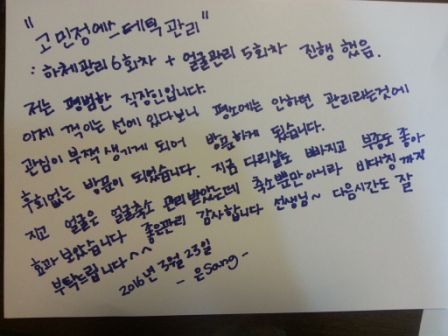 "고민정에스테틱관리"
: 하체관리 6회차 + 얼굴관리 5회차 진행 했음.
저는 평범한 직장인입니다.
이제 꺽이는 선에 있다보니 평소에는 안하던 관리라는것에
관심이 부쩍 생기게 되어 방문하게 됬습니다.
후회없는 방문이 되었습니다. 지금 다리살도 빠지고 부종도 좋아
지고 얼굴은 얼굴축소 관리받았는데 축소뿐만아니라 비대칭까지
효과 보았습니다 좋은관리 감사합니다 선생님~ 다음시간도 잘
부탁드립니다^^
2016년 3월 23일
- 은Sang -